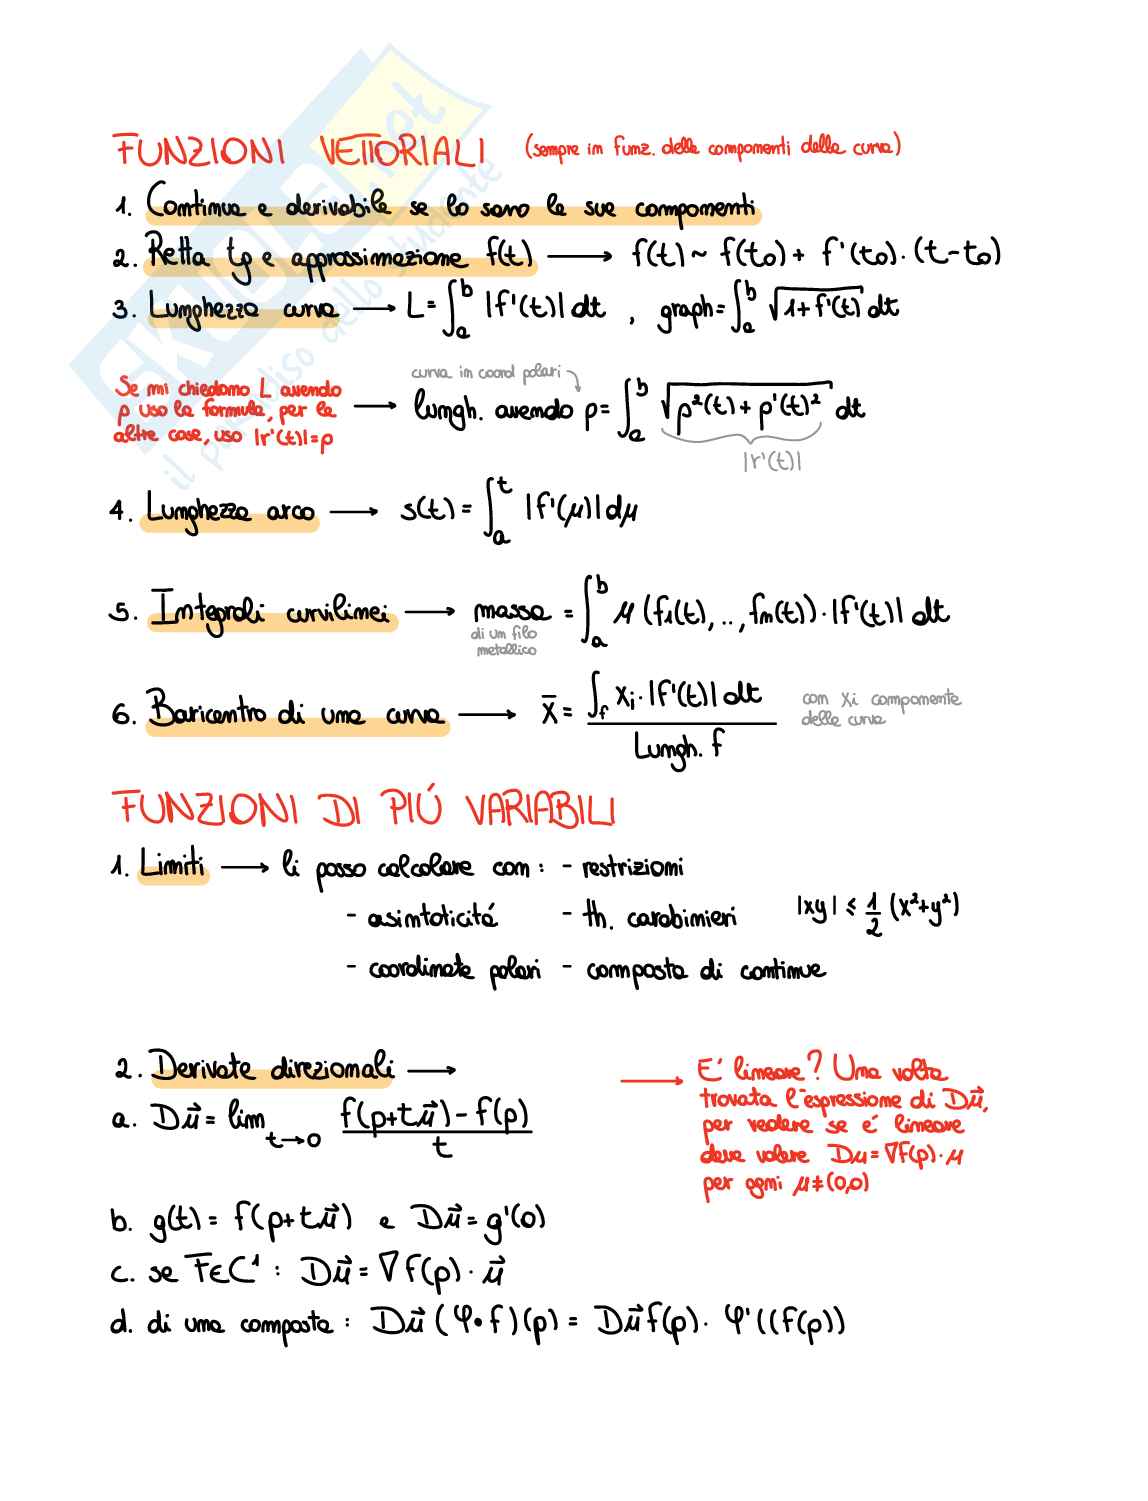 FUNZIONI VETTORIALI (sempre in funz. delle componenti della curva)
1. Continua e derivabile se lo sono le sue componenti
2. Retta tg e approssimazione f(t) ⟶ f(t) ~ f(t₀) + f'(t₀)·(t-t₀)
3. Lunghezza curva ⟶ L = ∫ₐᵇ |f'(t)| dt , graph = ∫ₐᵇ √(1+f'(t)) dt
curva in coord polari
Se mi chiedono L avendo
ρ uso la formula, per le
altre cose, uso |r'(t)|=ρ
⟶ lungh. avendo ρ = ∫ₐᵇ √(ρ²(t) + ρ'(t)²) dt
|r'(t)|
4. Lunghezza arco ⟶ s(t) = ∫ₐᵗ |f'(μ)| dμ
5. Integrali curvilinei ⟶ massa = ∫ₐᵇ μ (f₁(t), .., fn(t)) · |f'(t)| dt
di un filo
metallico
6. Baricentro di una curva ⟶ x̄ = ∫_f xᵢ · |f'(t)| dt / Lungh. f
con xi componente
della curva
FUNZIONI DI PIÚ VARIABILI
1. Limiti ⟶ li posso calcolare con: - restrizioni
- asintoticitá - th. carabinieri |xy| ≤ 1/2 (x²+y²)
- coordinate polari - composta di continue
2. Derivate direzionali ⟶
a. Du⃗ = lim t→0 f(p+tu⃗) - f(p) / t
⟶ E' lineare? Una volta
trovata l'espressione di Du⃗,
per vedere se é lineare
deve valere Dμ = ∇f(p)·μ
per ogni μ≠(0,0)
b. g(t) = f(p+tu⃗) e Du⃗ = g'(0)
c. se F∈C¹ : Du⃗ = ∇f(p) · u⃗
d. di una composta : Du⃗ (φ∘f)(p) = Du⃗f(p) · φ'((f(p))
SKUOLA.net
il paradiso dello studente